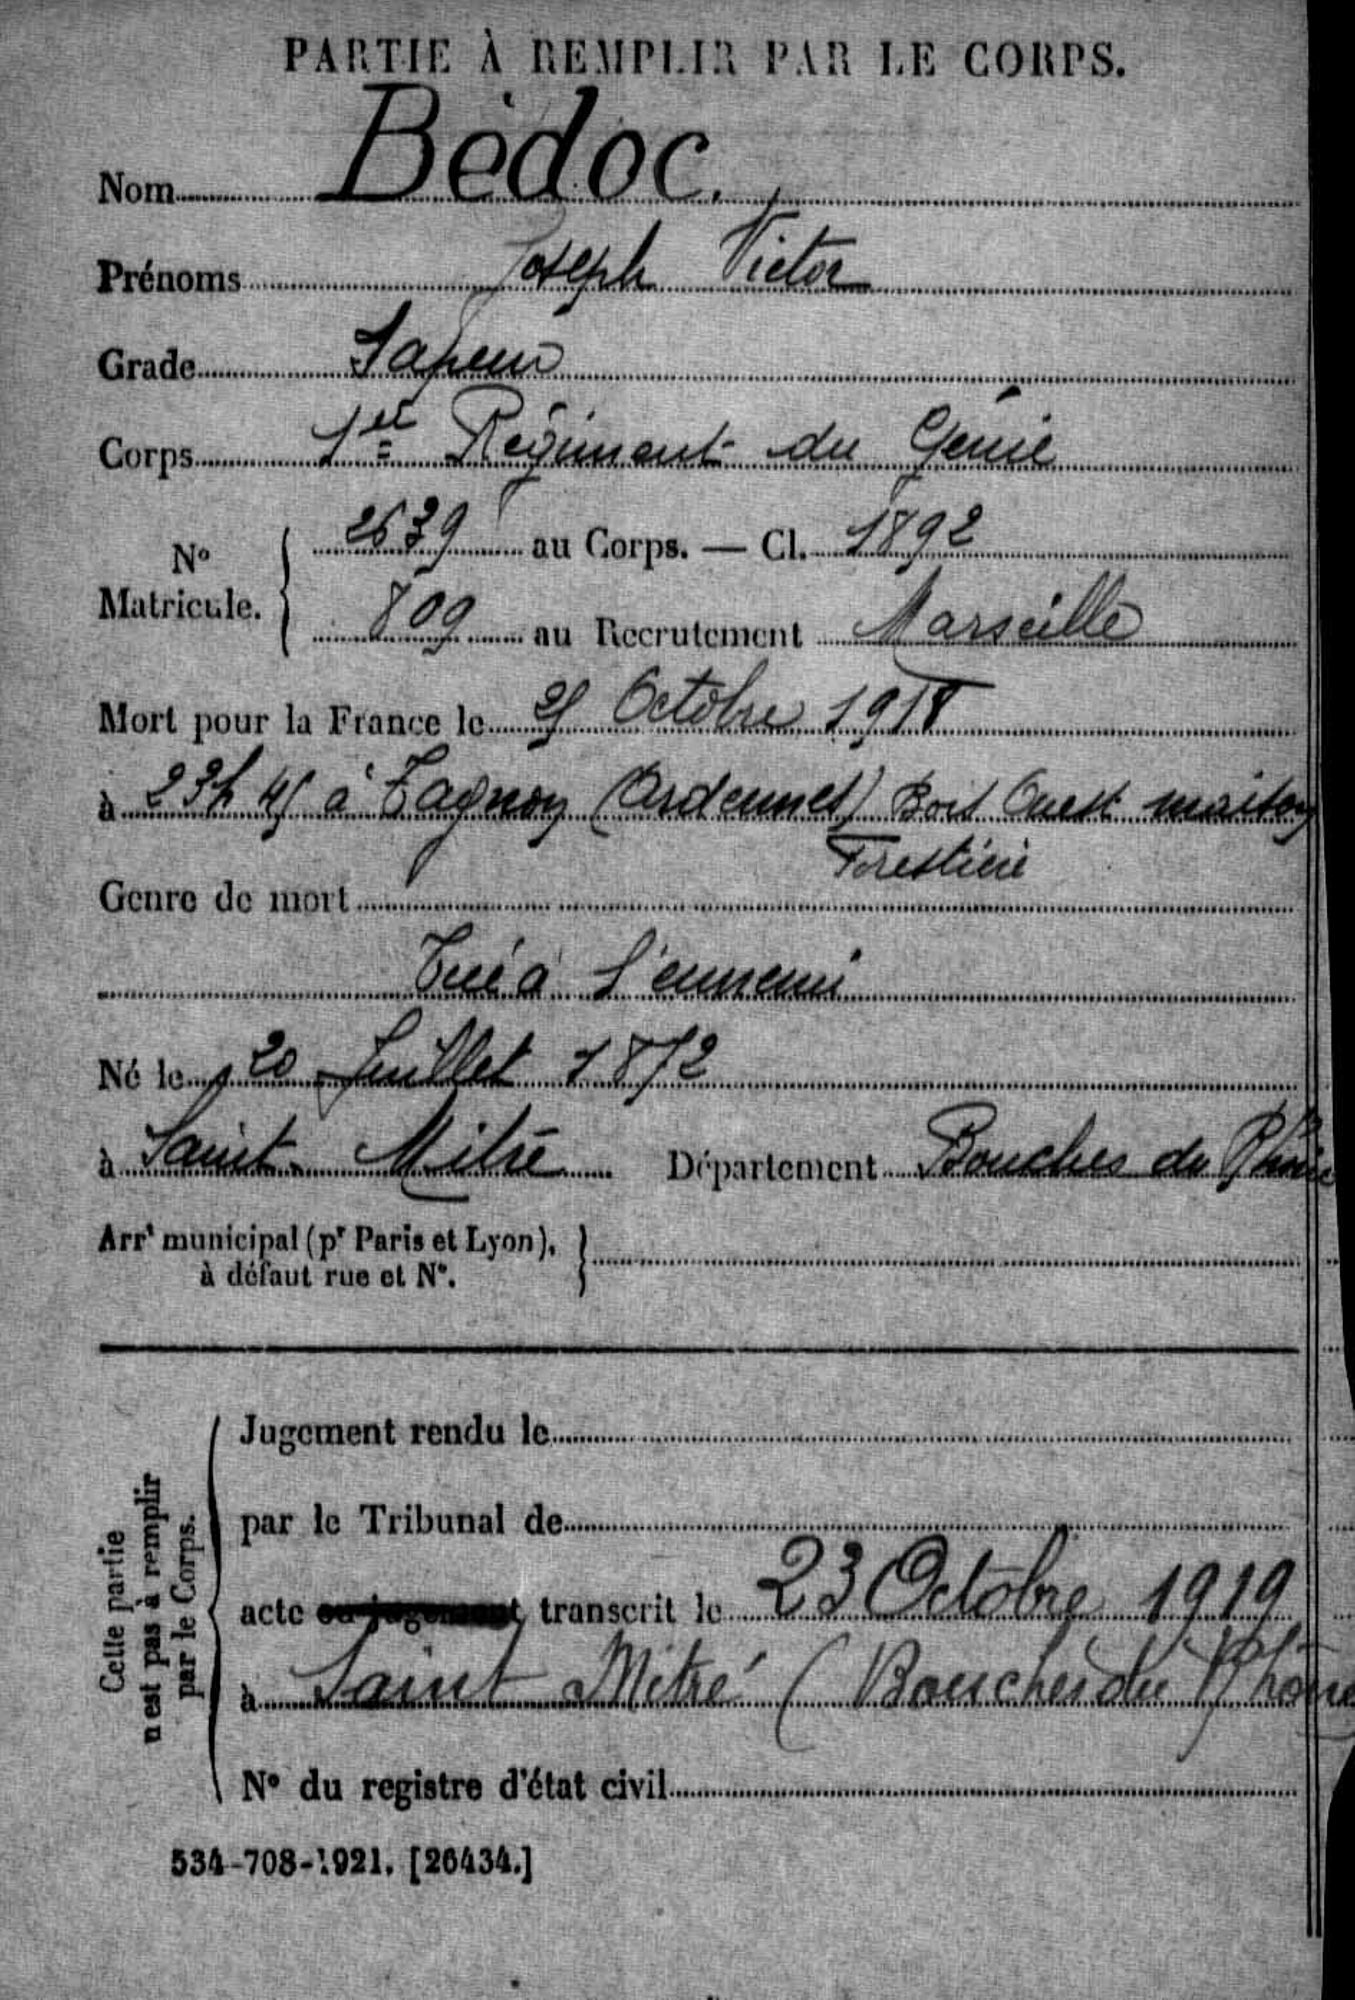 PARTIE À REMPLIR PAR LE CORPS.
Nom Bèdoc.
Prénoms Joseph Victor
Grade Sapeur
Corps 1er Régiment du Génie
N° Matricule. { 2639 au Corps. — Cl. 1892
809 au Recrutement Marseille
Mort pour la France le Octobre 1918
à 23h 45 à Tagnon (Ardennes) Bois Ouest maison
Forestière
Genre de mort
Tué à l'ennemi
Né le 20 Juillet 1872
à Saint Mitre Département Bouches du Rhône
Arrt municipal (pr Paris et Lyon),
à défaut rue et N°.
Cette partie
n'est pas à remplir
par le Corps.
Jugement rendu le
par le Tribunal de
acte ou jugement transcrit le 23 Octobre 1919
à Saint Mitré (Bouches du Rhône
N° du registre d'état civil
534-708-1921. [26434.]